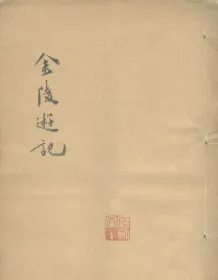 金陵遊記